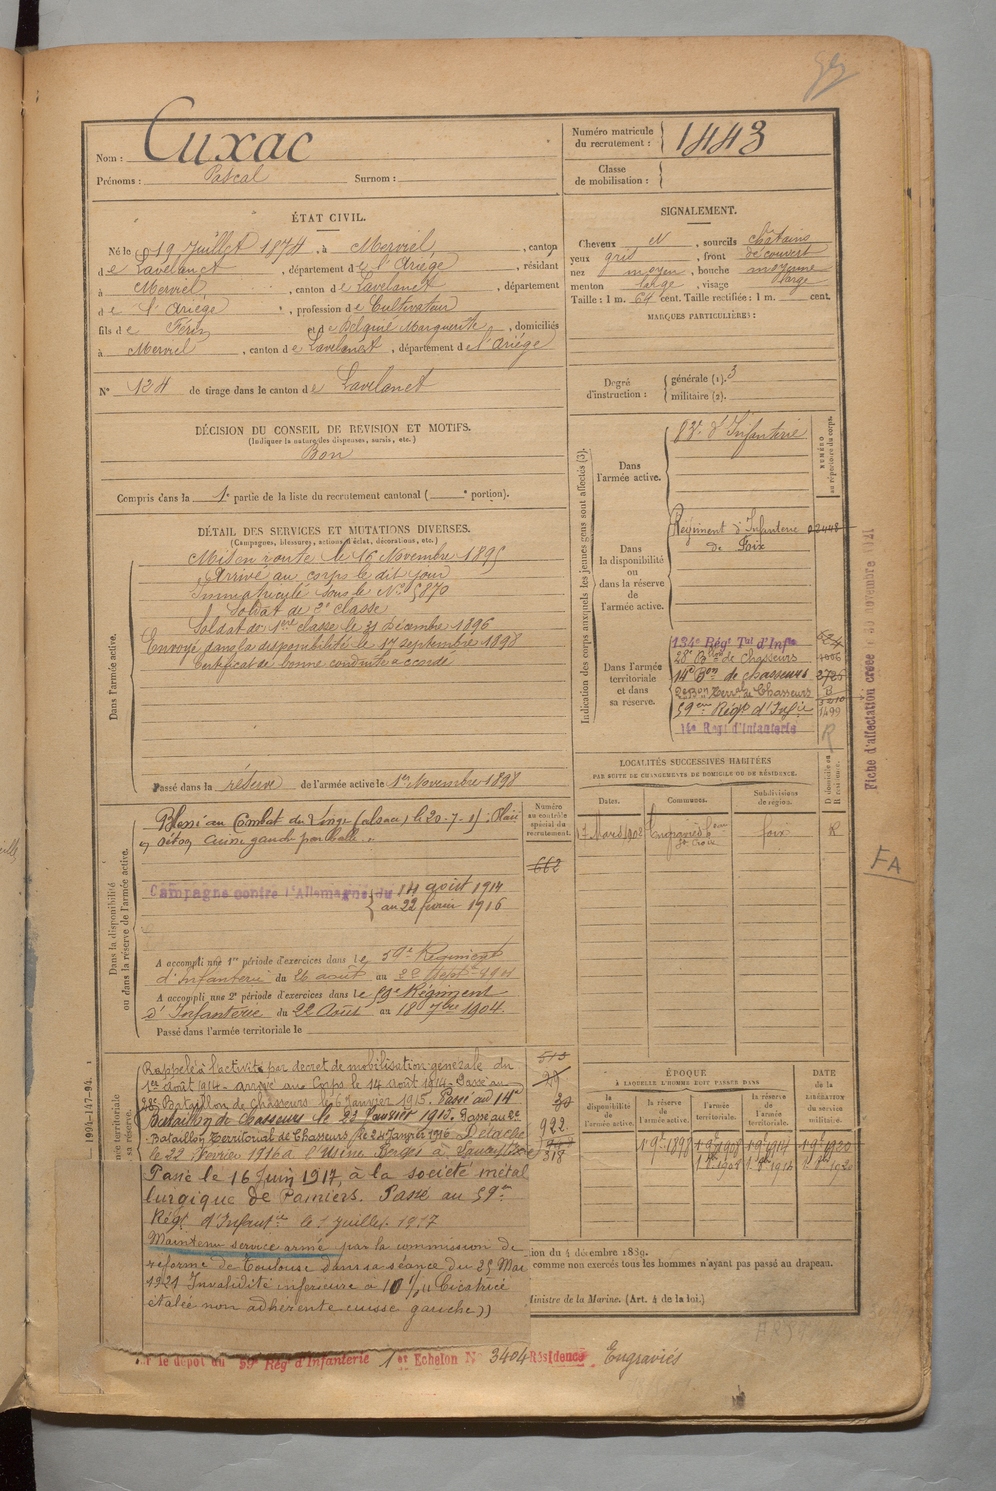 Nom : Cuxac
Prénoms : Pascal Surnom :
Numéro matricule du recrutement : 1443
Classe de mobilisation :
ÉTAT CIVIL.
Né le 19 Juillet 1874, à Merviel, canton
de Lavelanet, département de l'Ariège, résidant
à Merviel, canton de Lavelanet, département
de l'Ariège, profession de Cultivateur
fils de et de Marguerite, domiciliés
à Merviel, canton de Lavelanet, département de l'Ariège
N° 124 de tirage dans le canton de Lavelanet
SIGNALEMENT.
Cheveux N, sourcils châtains
yeux gris, front découvert
nez moyen, bouche moyenne
menton large, visage large
Taille : 1 m. 64 cent. Taille rectifiée : 1 m. cent.
MARQUES PARTICULIÈRES :
Degré d'instruction : générale (1). 3
militaire (2).
DÉCISION DU CONSEIL DE REVISION ET MOTIFS.
(Indiquer la nature des dispenses, sursis, etc.)
Bon
Compris dans la 1e partie de la liste du recrutement cantonal ( e portion).
DÉTAIL DES SERVICES ET MUTATIONS DIVERSES.
(Campagnes, blessures, actions d'éclat, décorations, etc.)
Dans l'armée active.
Mis en route le 16 Novembre 1895
Arrivé au corps le dit jour
Immatriculé sous le No 5870
Soldat de 2e classe
Soldat de 1ère classe le 31 Décembre 1896
Envoyé dans la disponibilité le 17 septembre 1898
Certificat de bonne conduite accordé
Passé dans la réserve de l'armée active le 1er Novembre 1898
Dans la disponibilité ou dans la réserve de l'armée active.
Blessé au Combat du Linge (alsace) le 20-7-15 : Plaie
cuisse gauche par balle.
Campagne contre l'Allemagne du 14 août 1914
au 22 février 1916
A accompli une 1re période d'exercices dans le 59e Régiment
d'Infanterie du 26 août au 22 Sept 1901
A accompli une 2e période d'exercices dans le 59e Régiment
d'Infanterie du 22 Août au 18 7bre 1904.
Passé dans l'armée territoriale le
Numéro au contrôle spécial du recrutement.
662
Rappelé à l'activité par décret de mobilisation générale du
1er août 1914 - arrivé au Corps le 14 août 1914 - Passé au
28e Bataillon de Chasseurs le 6 Janvier 1915. Passé au 14e
Bataillon de Chasseurs le 23 Janvier 1915. Passé au 2e
Bataillon Territorial de Chasseurs, le 24 Janvier 1916 Détaché
le 22 Février 1916 à l'Usine Berges à
Passé le 16 Juin 1917, à la société métal
lurgique de Pamiers. Passé au 59em
Régt d'Infanterie le 1 Juillet 1917
Maintenu service armé par la commission de
réforme de Toulouse dans sa séance du 25 Mai
1921 Invalidité inférieure à 10 % (( Cicatrice
étalée non adhérente cuisse gauche ))
513
29
922
318
Indication des corps auxquels les jeunes gens sont affectés (3).
NUMÉRO au répertoire du corps.
Dans l'armée active.
83e d'Infanterie
Dans la disponibilité ou dans la réserve de l'armée active.
Régiment d'Infanterie
de Foix
Dans l'armée territoriale et dans sa réserve.
134e Régt Tal d'Infie
28e Bon de Chasseurs
14e Bon de chasseurs
2e Bon Terral de Chasseurs
59em Régt d'Infie 1499
14e Regt d'Infanterie
LOCALITÉS SUCCESSIVES HABITÉES
PAR SUITE DE CHANGEMENTS DE DOMICILE OU DE RÉSIDENCE.
Dates. Communes. Subdivisions de région. D domicile ou R résidence.
17 Mars 1902 Engraviès Foix R
ÉPOQUE
À LAQUELLE L'HOMME DOIT PASSER DANS
la disponibilité de l'armée active. la réserve de l'armée active. l'armée territoriale. la réserve de l'armée territoriale. DATE de la LIBÉRATION du service militaire.
1 9e 1898 1 9e 1908 1 9e 1914 1 9e 1920
tion du 4 décembre 1889.
comme non exercés tous les hommes n'ayant pas passé au drapeau.
Ministre de la Marine. (Art. 4 de la loi.)
le dépôt du 59e Régt d'Infanterie 1er Echelon N° 3404 Résidence Engraviés
Fiche d'affectation créée au novembre 1921
FA
1994-147-94.